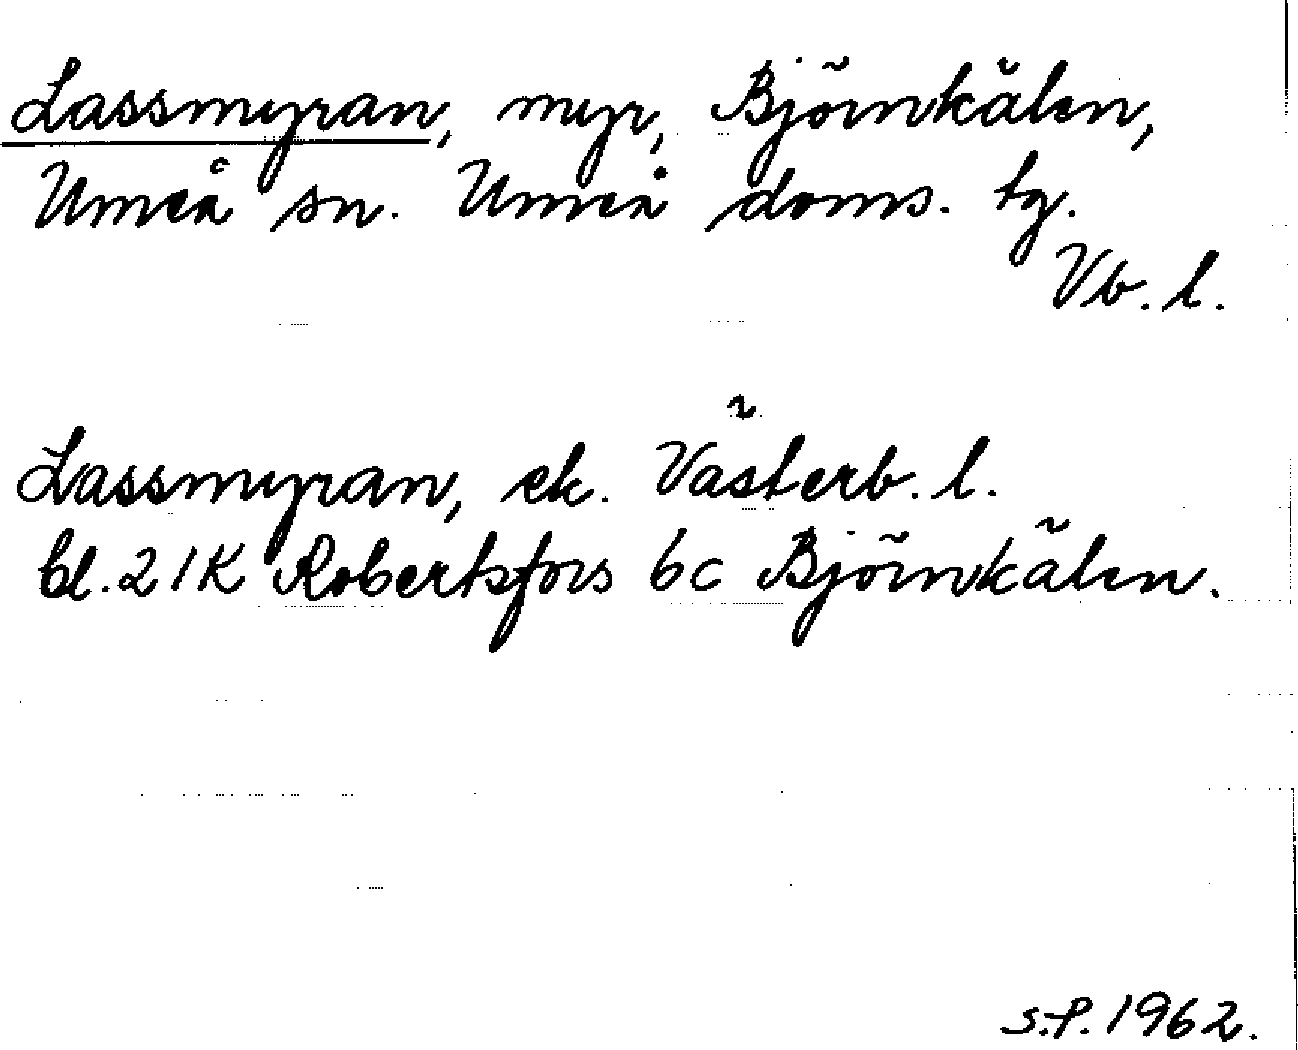 Lassmyran, myr, Björnkälen,
Umeå sn. Umeå doms. tg.
Vb. l.
Lassmyran, ek. Västerb. l.
bl. 21K Robertsfors 6c Björnkälen.
S.P. 1962.